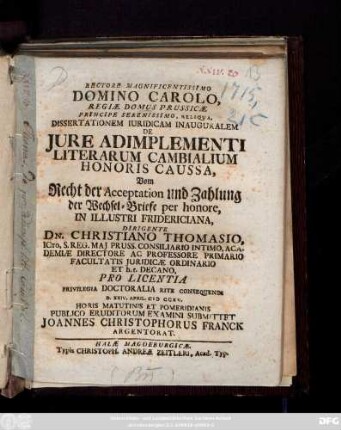 RECTORE MAGNIFICENTISSIMO
DOMINO CAROLO,
REGIÆ DOMUS PRUSSICÆ
PRINCIPE SERENISSIMO, RELIQUA,
DISSERTATIONEM IURIDICAM INAUGURALEM
DE
JURE ADIMPLEMENTI
LITERARUM CAMBIALIUM
HONORIS CAUSSA,
Vom
Recht der Acceptation und Zahlung
der Wechsel-Briefe per honore,
IN ILLUSTRI FRIDERICIANA,
DIRIGENTE
DN. CHRISTIANO THOMASIO,
ICto, S. REG. MAJ PRUSS. CONSILIARIO INTIMO, ACA-
DEMIÆ DIRECTORE AC PROFESSORE PRIMARIO
FACULTATIS JURIDICÆ ORDINARIO
ET h.t. DECANO,
PRO LICENTIA
PRIVILEGIA DOCTORALIA RITE CONSEQUENDI
D. XXIV. APRIL.
HORIS MATUTINIS ET POMERIDIANIS
PUBLICO ERUDITORUM EXAMINI SUBMITTET
JOANNES CHRISTOPHORUS FRANCK
ARGENTORAT.
HALÆ MAGDEBURGICÆ,
Typis CHRISTOPH. ANDREÆ ZEITLERI, Acad. Typ.